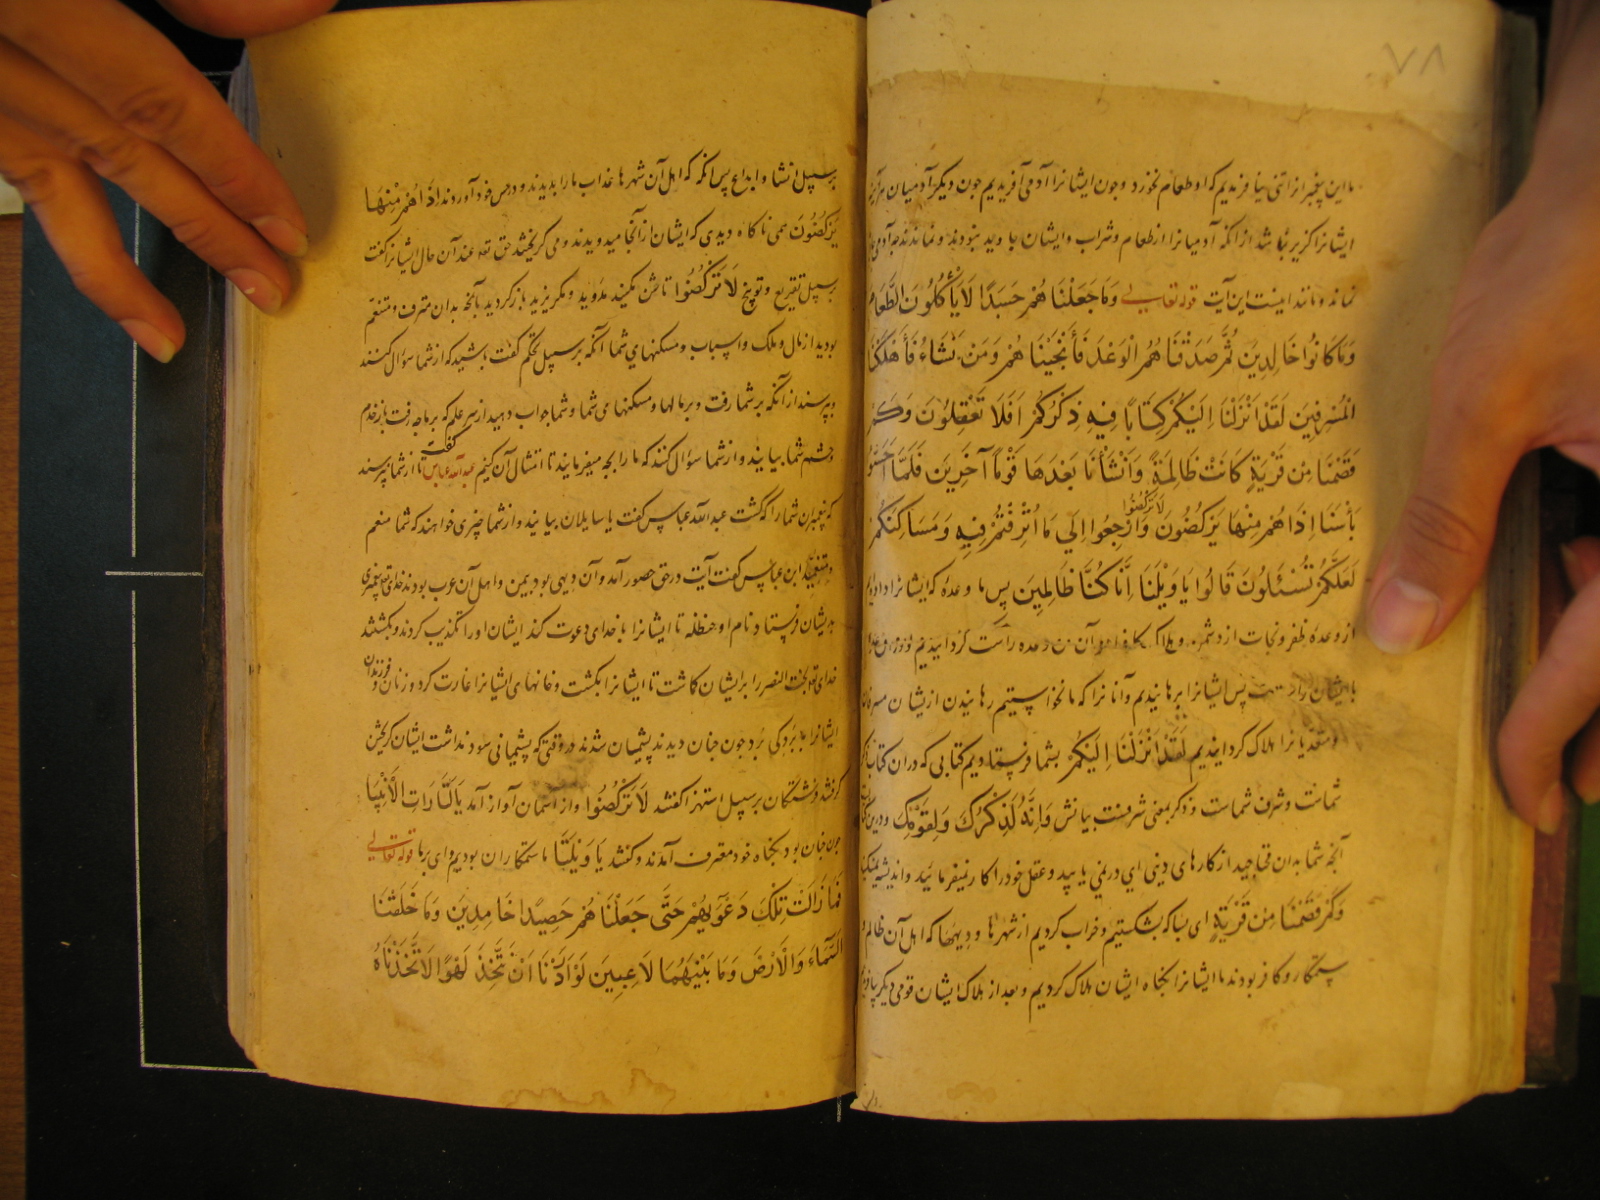 ۷۸
ما این پیغمبرانرا تنی نیافریدیم که او طعام نخورد و چون ایشانرا آدمی آفریدیم چون دیگر آدمیان
ایشانرا گزیر نباشد از آنکه آدمیانرا از طعام و شراب و ایشان جاوید نبودند و نماندند
اینست این آیت قوله تعالی وَمَا جَعَلْنَا هُمْ جَسَدًا لَا يَأْكُلُونَ الطَّعَامَ
وَمَا كَانُوا خَالِدِينَ ثُمَّ صَدَقْنَا هُمُ الْوَعْدَ فَأَنْجَيْنَا هُمْ وَمَنْ نَشَاءُ فَأَهْلَكْنَا
الْمُسْرِفِينَ لَقَدْ اَنْزَلْنَا اِلَيْكُمْ كِتَابًا فِيهِ ذِكْرُكُمْ اَفَلَا تَعْقِلُونَ وَكَمْ
قَصَمْنَا مِنْ قَرْيَةٍ كَانَتْ ظَالِمَةً وَاَنْشَأْنَا بَعْدَهَا قَوْمًا آخَرِينَ فَلَمَّا اَحَسُّوا
بَأْسَنَا اِذَا هُمْ مِنْهَا يَرْكُضُونَ لَا تَرْكُضُوا وَارْجِعُوا اِلَى مَا اُتْرِفْتُمْ فِيهِ وَمَسَاكِنِكُمْ
لَعَلَّكُمْ تُسْئَلُونَ قَالُوا يَا وَيْلَنَا اِنَّا كُنَّا ظَالِمِينَ پس ما وعده که ایشانرا داده
از وعده ظفر و نجات از دشمن و هلاک آن وعده راست گردانیدیم
پس ایشانرا برهانیدیم و آنانرا که ما نخواستیم رهانیدن ازیشان مسرفان
هلاک گردانیدیم لَقَدْ اَنْزَلْنَا اِلَيْكُمْ بشما فرستادیم کتابی که در آن کتاب
شماست و شرف شماست و ذکر بمعنی شرفست بیانش وَاِنَّهُ لَذِكْرٌ لَكَ وَلِقَوْمِكَ و درین
آنچه شما بدان محتاجید از کارهای دینی ای درنمی یابید و عقل خود را کار نمیفرمائید و اندیشه نمیکنید
وَكَمْ قَصَمْنَا مِنْ قَرْيَةٍ ای بسا که بشکستیم و خراب کردیم از شهرها و دیهها که اهل آن ظالم
ستمکار و کافر بودند ما ایشانرا هلاک کردیم و بعد از هلاک ایشان قومی دیگر
بر سبیل انشا و ابداع پس آنکه که اهل آن شهرها عذاب ما را بدیدند و در حس خود آوردند اِذَا هُمْ مِنْهَا
يَرْكُضُونَ همی ناگاه دیدی که ایشان از آنجا میدویدند و می گریختند حق تعه عند آن حال ایشانرا گفت
بر سبیل تقریع و توبیخ لَا تَرْكُضُوا تاختن مکنید مدوید و مگریزید بازگردید بآنچه بدان مترف و متنعم
بودید از مال و ملک و اسباب و مسکنهای شما آنگه بر سبیل تحکم گفت باشید که از شما سؤال کنند
و پرسند از آنکه بر شما رفت و بر مالها و مسکنهای شما و شما جواب دهید از سر علم که بر ما چه رفت
و حشم شما بیایند و از شما سؤال کنند که ما را بچه میفرمایند تا امتثال آن کنیم عبدالله عباس گفت تا از شما پرسند
که پیغمبران شما را که کشت عبدالله عباس گفت یا سایلان بیایند و از شما چیزی خواهند که شما منعم
ابن عباس گفت آیت در حق حضور آمد و آن دیهی بود بیمن و اهل آن عرب بودند خدای تعه پیغمبری
بدیشان فرستاد نام او حنظله تا ایشانرا با خدای دعوت کند ایشان او را تکذیب کردند و بکشتند
خدای تعه بخت النصر را بر ایشان گماشت تا ایشانرا بکشت و خانهای ایشانرا غارت کرد و زنان و فرزندان
ایشانرا به بردگی برد چون چنان دیدند پشیمان شدند در وقتی که پشیمانی سود نداشت ایشان گریختن
گرفتند و فرشتگان بر سبیل استهزا گفتند لَا تَرْكُضُوا و از آسمان آواز آمد يَا لَثَارَاتِ الْأَنْبِيَا
چون چنان بود بگناه خود معترف آمدند و گفتند يَا وَيْلَتَنَا ما ستمکاران بودیم وای بر ما قوله تعالی
فَمَا زَالَتْ تِلْكَ دَعْوَيهُمْ حَتَّى جَعَلْنَا هُمْ حَصِيدًا خَامِدِينَ وَمَا خَلَقْنَا
السَّمَاءَ وَالْاَرْضَ وَمَا بَيْنَهُمَا لَاعِبِينَ لَوْ اَرَدْنَا اَنْ نَتَّخِذَ لَهْوًا لَاتَّخَذْنَاهُ